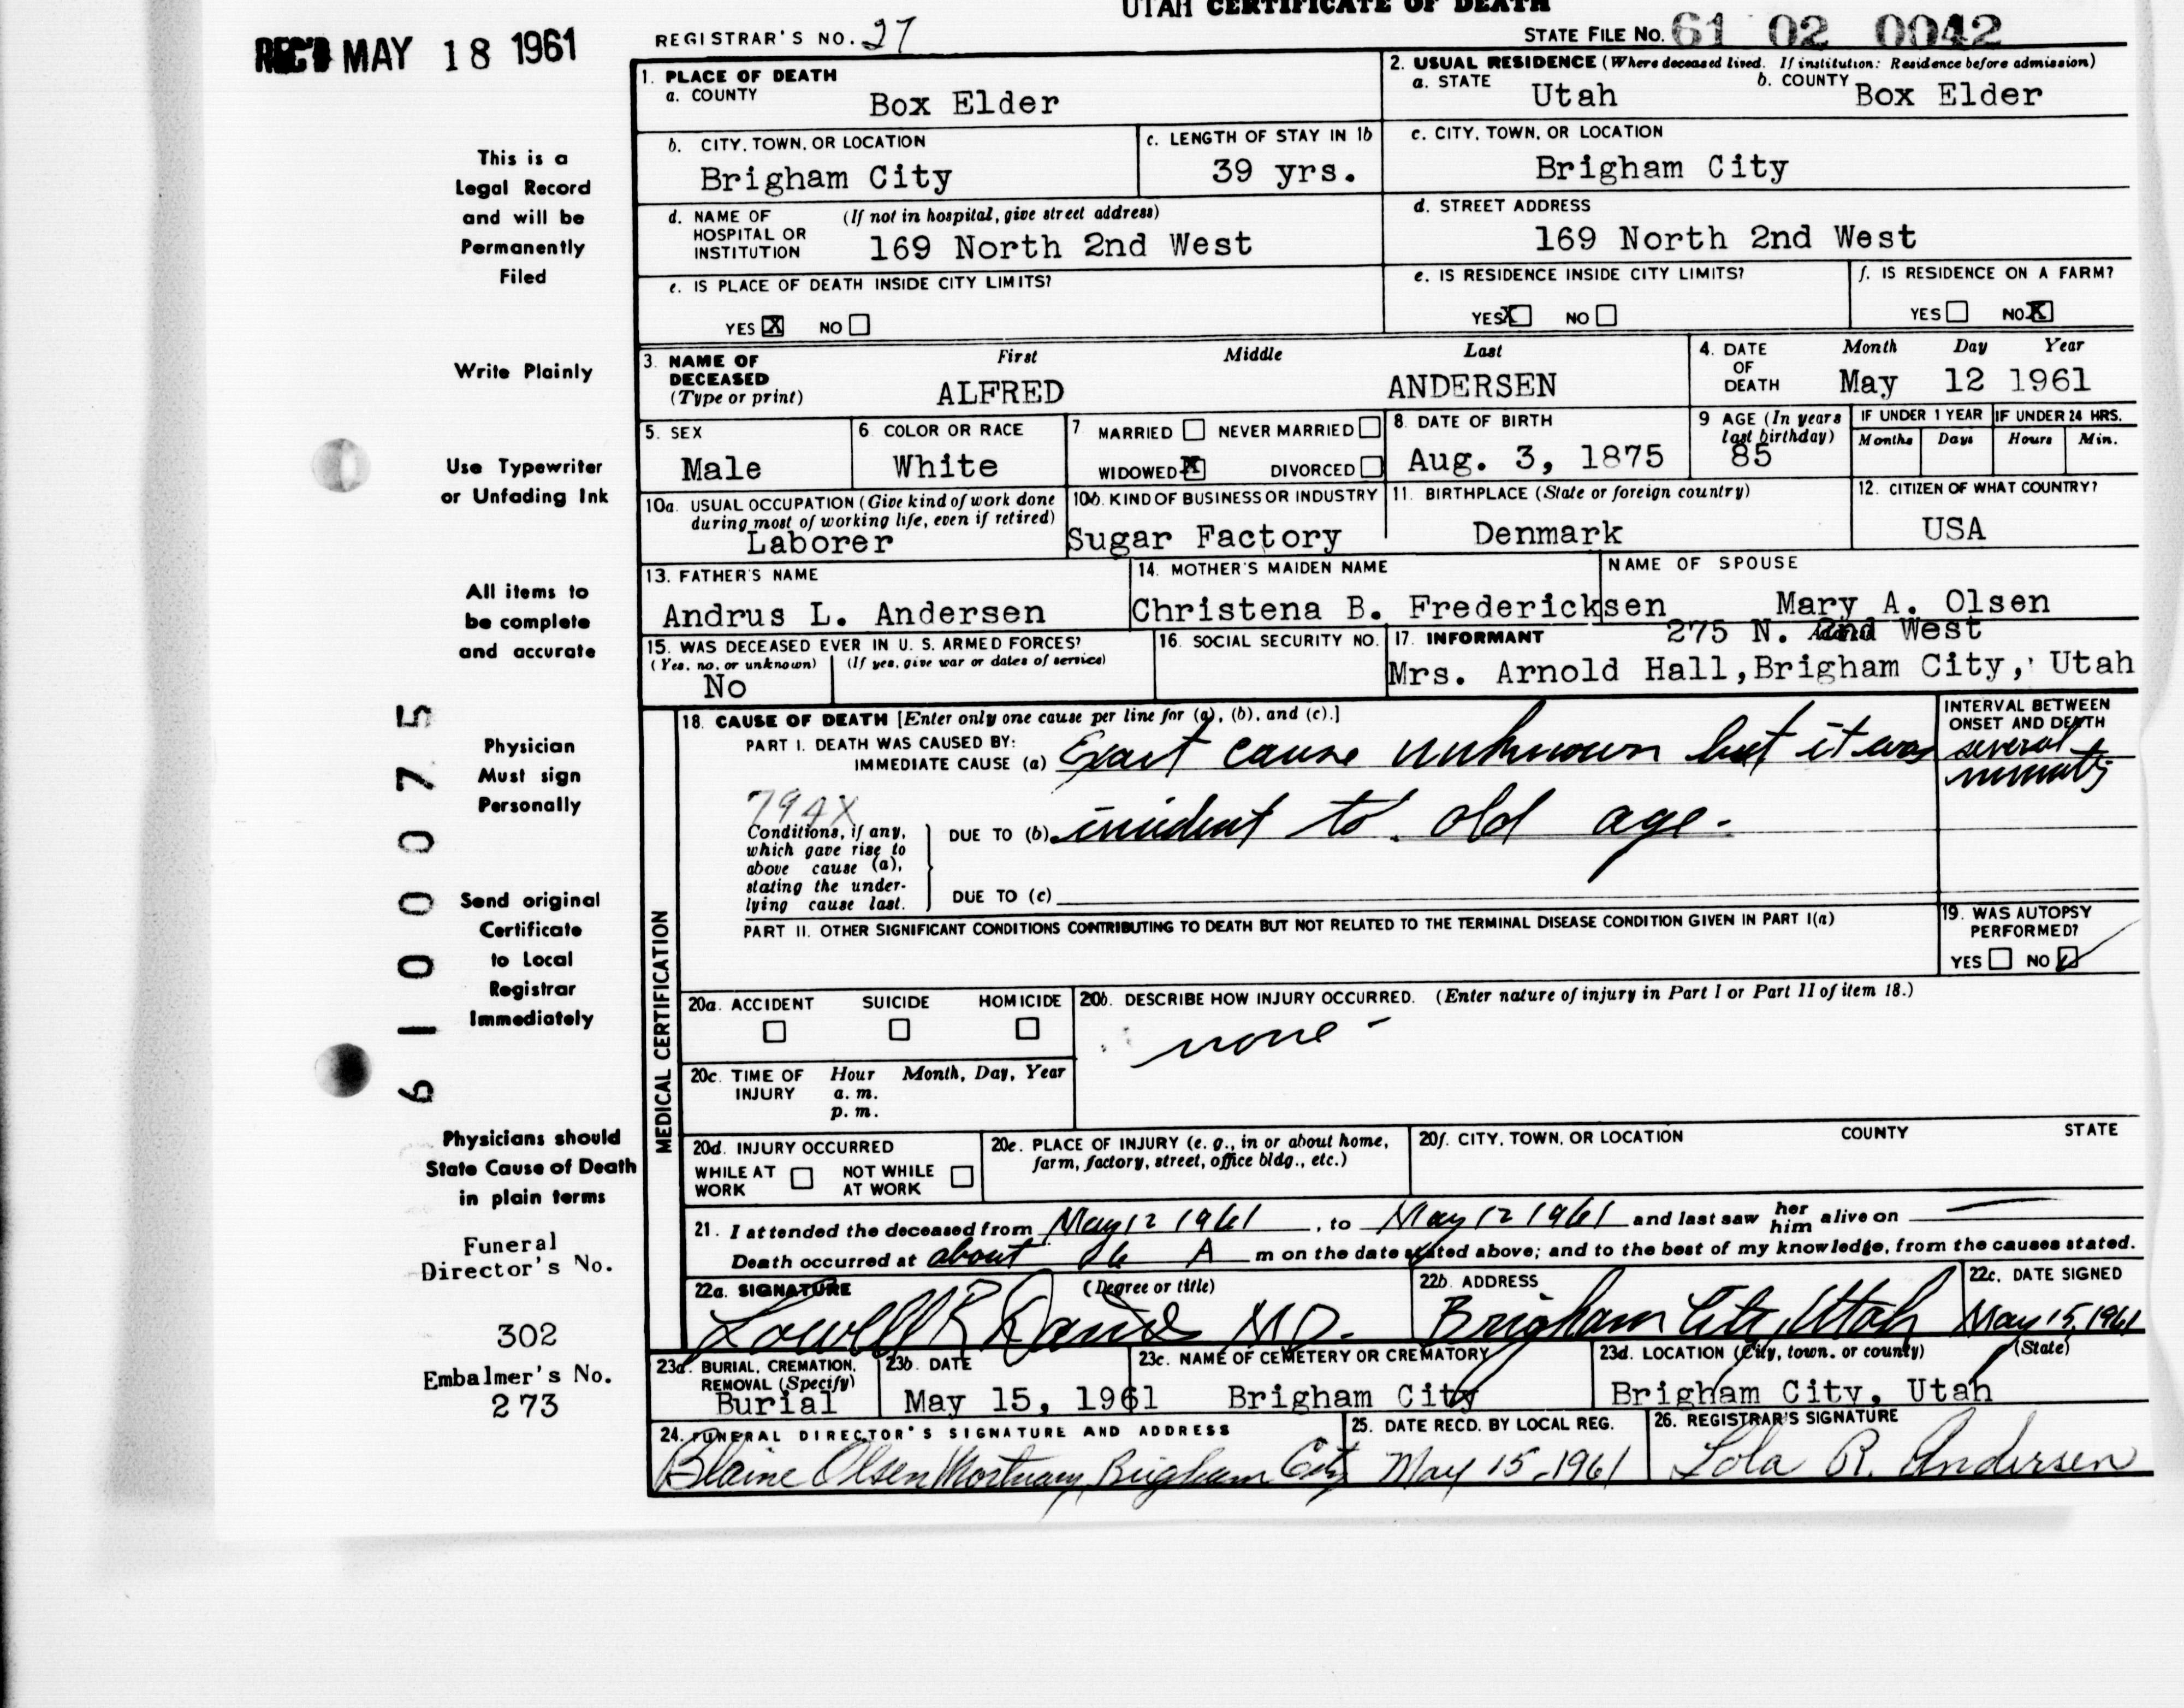 UTAH CERTIFICATE OF DEATH
REC'D MAY 18 1961
REGISTRAR'S NO. 27
STATE FILE No. 61 02 0042
1. PLACE OF DEATH
a. COUNTY
Box Elder
2. USUAL RESIDENCE (Where deceased lived. If institution: Residence before admission)
a. STATE Utah b. COUNTY Box Elder
b. CITY, TOWN, OR LOCATION
Brigham City
c. LENGTH OF STAY IN 1b
39 yrs.
c. CITY, TOWN, OR LOCATION
Brigham City
d. NAME OF HOSPITAL OR INSTITUTION (If not in hospital, give street address)
169 North 2nd West
d. STREET ADDRESS
169 North 2nd West
e. IS PLACE OF DEATH INSIDE CITY LIMITS?
YES X NO
e. IS RESIDENCE INSIDE CITY LIMITS?
YES X NO
f. IS RESIDENCE ON A FARM?
YES NO X
3. NAME OF DECEASED (Type or print)
First Middle Last
ALFRED ANDERSEN
4. DATE OF DEATH
Month Day Year
May 12 1961
5. SEX
Male
6. COLOR OR RACE
White
7 MARRIED NEVER MARRIED
WIDOWED X DIVORCED
8. DATE OF BIRTH
Aug. 3, 1875
9 AGE (In years last birthday)
85
IF UNDER 1 YEAR
Months Days
IF UNDER 24 HRS.
Hours Min.
10a. USUAL OCCUPATION (Give kind of work done during most of working life, even if retired)
Laborer
10b. KIND OF BUSINESS OR INDUSTRY
Sugar Factory
11. BIRTHPLACE (State or foreign country)
Denmark
12. CITIZEN OF WHAT COUNTRY?
USA
13. FATHER'S NAME
Andrus L. Andersen
14. MOTHER'S MAIDEN NAME
Christena B. Fredericksen
NAME OF SPOUSE
Mary A. Olsen
15. WAS DECEASED EVER IN U. S. ARMED FORCES?
(Yes, no, or unknown) (If yes, give war or dates of service)
No
16. SOCIAL SECURITY NO.
17. INFORMANT
275 N. 2nd West
Mrs. Arnold Hall, Brigham City, Utah
MEDICAL CERTIFICATION
18. CAUSE OF DEATH [Enter only one cause per line for (a), (b), and (c).]
PART I. DEATH WAS CAUSED BY:
IMMEDIATE CAUSE (a) Exact cause unknown but it was
INTERVAL BETWEEN ONSET AND DEATH
several
minutes
794X
Conditions, if any, which gave rise to above cause (a), stating the underlying cause last.
DUE TO (b) incident to old age.
DUE TO (c)
PART II. OTHER SIGNIFICANT CONDITIONS CONTRIBUTING TO DEATH BUT NOT RELATED TO THE TERMINAL DISEASE CONDITION GIVEN IN PART I(a)
19. WAS AUTOPSY PERFORMED?
YES NO ✓
20a. ACCIDENT SUICIDE HOMICIDE
20b. DESCRIBE HOW INJURY OCCURRED. (Enter nature of injury in Part I or Part II of item 18.)
none -
20c. TIME OF INJURY Hour Month, Day, Year
a. m.
p. m.
20d. INJURY OCCURRED
WHILE AT WORK NOT WHILE AT WORK
20e. PLACE OF INJURY (e. g., in or about home, farm, factory, street, office bldg., etc.)
20f. CITY, TOWN, OR LOCATION COUNTY STATE
21. I attended the deceased from May 12 1961, to May 12 1961 and last saw her him alive on
Death occurred at about 6 A m on the date stated above; and to the best of my knowledge, from the causes stated.
22a. SIGNATURE (Degree or title)
Lowell R Daines M.D.
22b. ADDRESS
Brigham City, Utah
22c. DATE SIGNED
May 15, 1961
23a. BURIAL, CREMATION, REMOVAL (Specify)
Burial
23b. DATE
May 15, 1961
23c. NAME OF CEMETERY OR CREMATORY
Brigham City
23d. LOCATION (City, town, or county) (State)
Brigham City, Utah
24. FUNERAL DIRECTOR'S SIGNATURE AND ADDRESS
Blaine Olsen Mortuary, Brigham City
25. DATE RECD. BY LOCAL REG.
May 15 - 1961
26. REGISTRAR'S SIGNATURE
Lola R. Andersen
This is a
Legal Record
and will be
Permanently
Filed
Write Plainly
Use Typewriter
or Unfading Ink
All items to
be complete
and accurate
Physician
Must sign
Personally
Send original
Certificate
to Local
Registrar
Immediately
Physicians should
State Cause of Death
in plain terms
Funeral
Director's No.
302
Embalmer's No.
273
61 00075